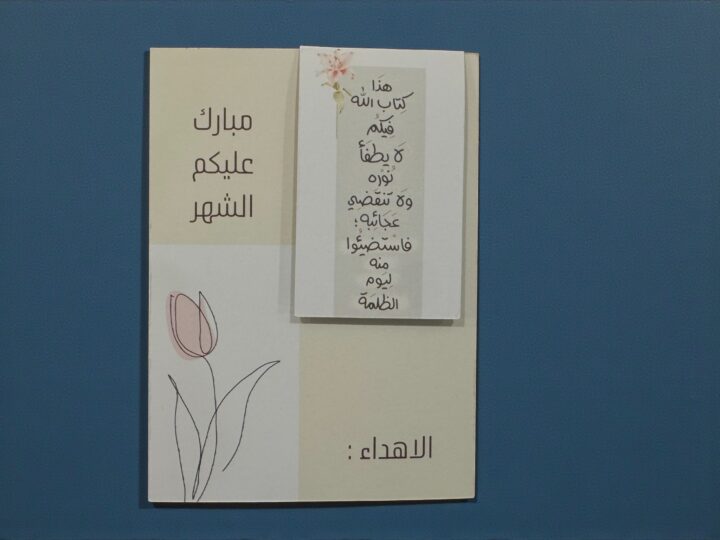 مبارك
عليكم
الشهر
هَذَا
كِتَاب الله
فِيكُم
لَا يطفَأ
نُوْرُه
وَلَا تَنقَضِي
عَجَائِبه ؛
فاسْتَضِيْئُوا
منه
لِيَوم
الظلمَة
الاهداء :